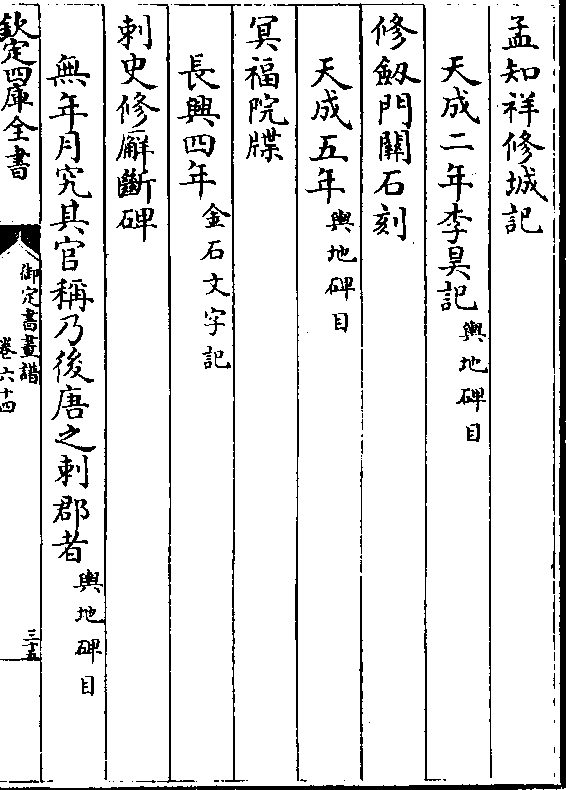 孟知祥修城記
天成二年李昊記輿地碑目
修劔門關石刻
天成五年輿地碑目
冥福院牒
長興四年金石文字記
刺史修廨斷碑
無年月究其官稱乃後唐之刺郡者輿地碑目
欽定四庫全書
御定書畫譜
卷六十四
三十五